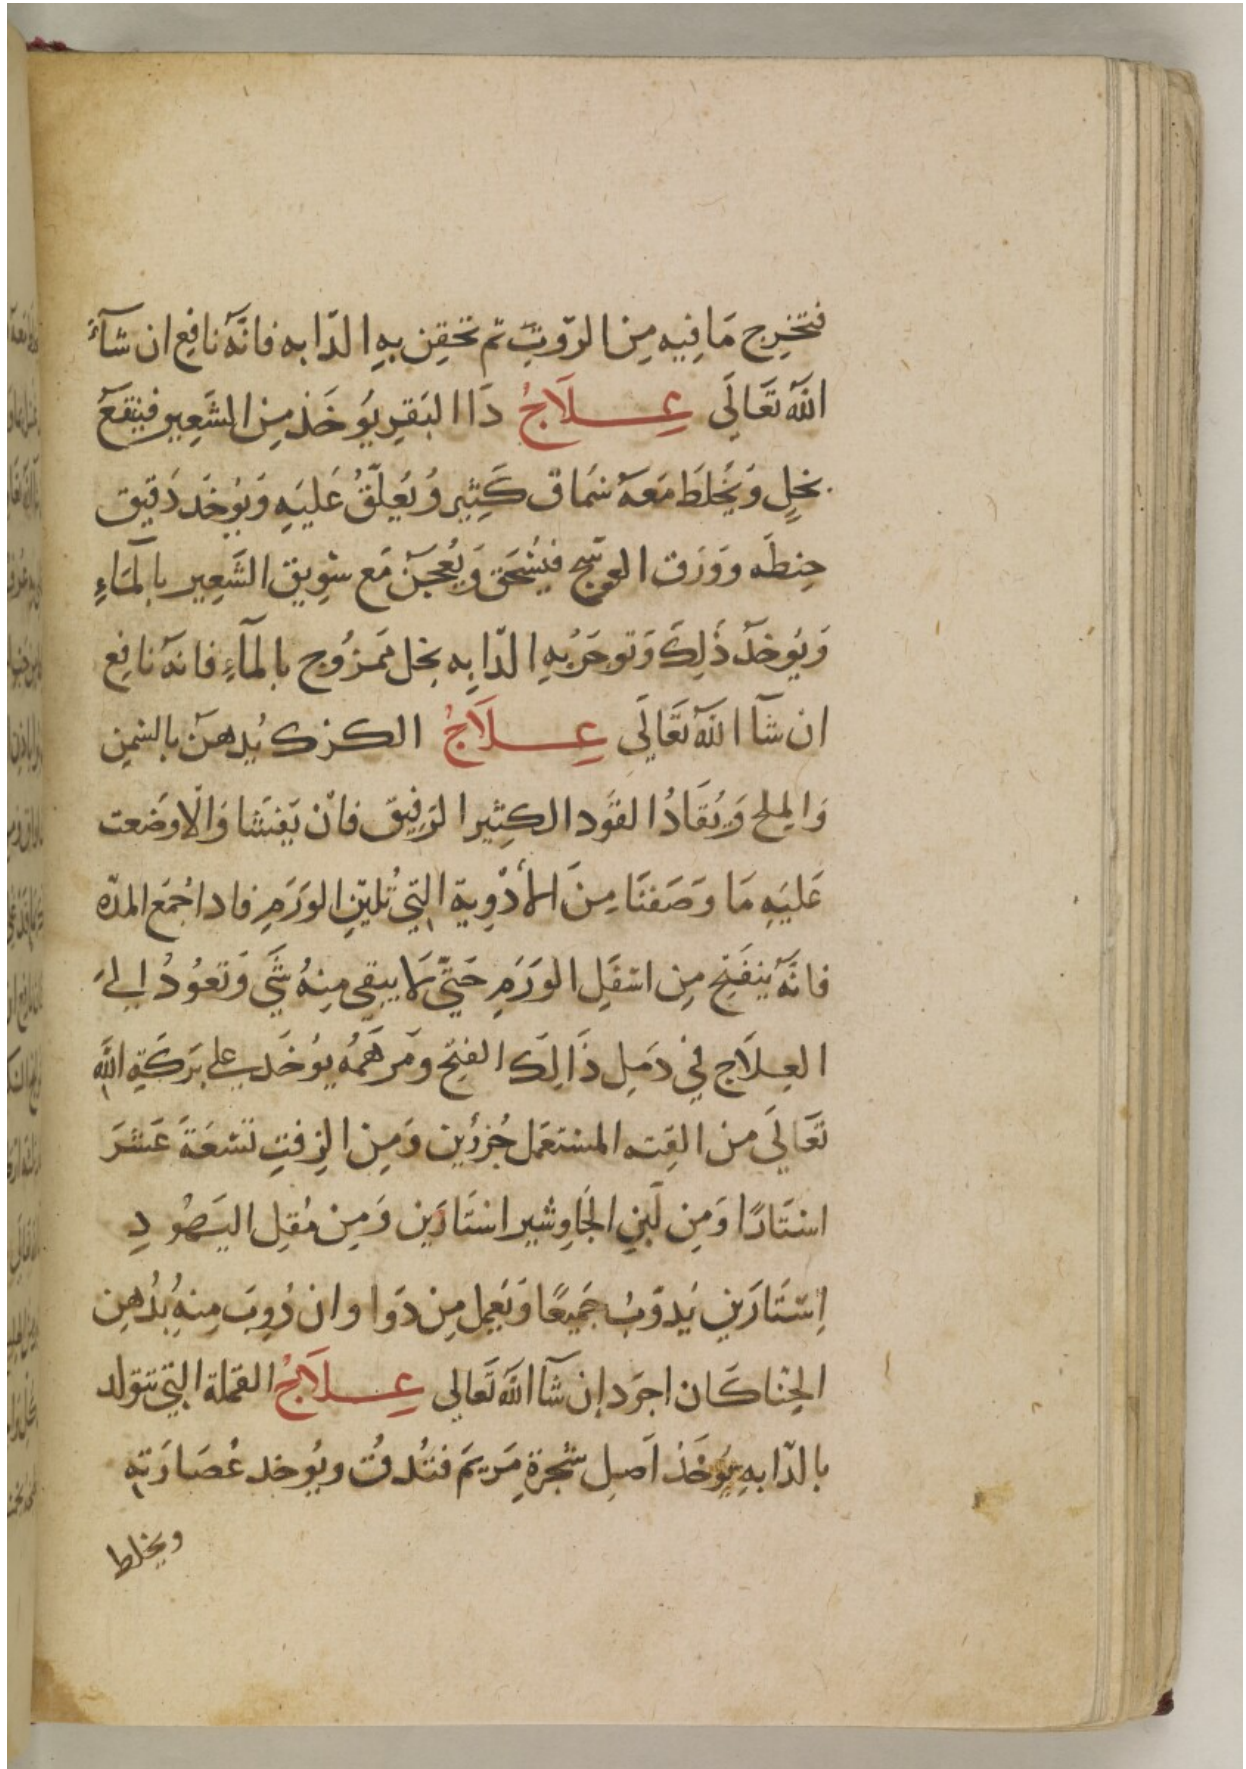 فتخرِج مَا فِيه مِن الروّثِ ثم تحقِن بهِ الدّابه فانّهُ نافِع ان شآءَ
اللهُ تَعَالَى عِلَاجُ دَا البَقرِ يوُخَذ مِن الشَعِير فينقَعُ
بخلٍ وَيُخلَطَ مَعهُ سُمَاق كَثِير وُيُعلّقُ عَليَهِ وَيوُخَد دَقيق
حِنطَه ووَرَق العوسَج فيُسْحَق وَيُعجَنُ مَع سَوِيق الشَعِير بالمآءِ
وَيوُخدُ ذَلِكَ وَتوجَرُ بهِ الدّابه بخل ممَزوُج بالمآءِ فانهُ نافِع
ان شآ اللهُ تَعَالَي عِلَاجُ الكزك يُدهنُ بالسَمِن
وَالمِلح وَيُقَادُ القوَد الكثِير الرَفِيق فانْ يَفشَا وَالّا وضَعت
عَليَهِ مَا وَصَفنَا مِنَ الأدْوِية التِي تُليّنِ الورَمِ فادا جُمَع المدّه
فانَّهُ ينفَتِح مِن اسَفَلِ الوَرَمِ حَتّي لَا يبقي مِنهُ شَي وَتعُودُ اِلي
العِلَاج فِي دمَلِ ذَالِكَ الفتِح ومَرهمُه يوُخَد علي بَرَكَةِ اللهِ
تَعَالَي من القِته المسُتعَمل جُزؤين وَمِن الزِفتِ تسَعَةَ عَشَرَ
استَارًا وَمِن لَبنِ الجَاوِشير استَارَين وَمِن مُقلِ اليَهُودِ
اِستَارَينِ يُدوّبُ جَميعًا وَيَعمِل مِن دَوا وان دُوِبَ مِنهِ بُدُهنِ
الحِنا كَان اجوَد إن شآ اللهُ تَعالي عِلَاجُ القمَلة التِي تتولد
بالدّابهِ يوُخَذ اَصلِ شجَرةِ مَريمَ فتُدقُ ويوُخد عُصَارَته
ويخلط